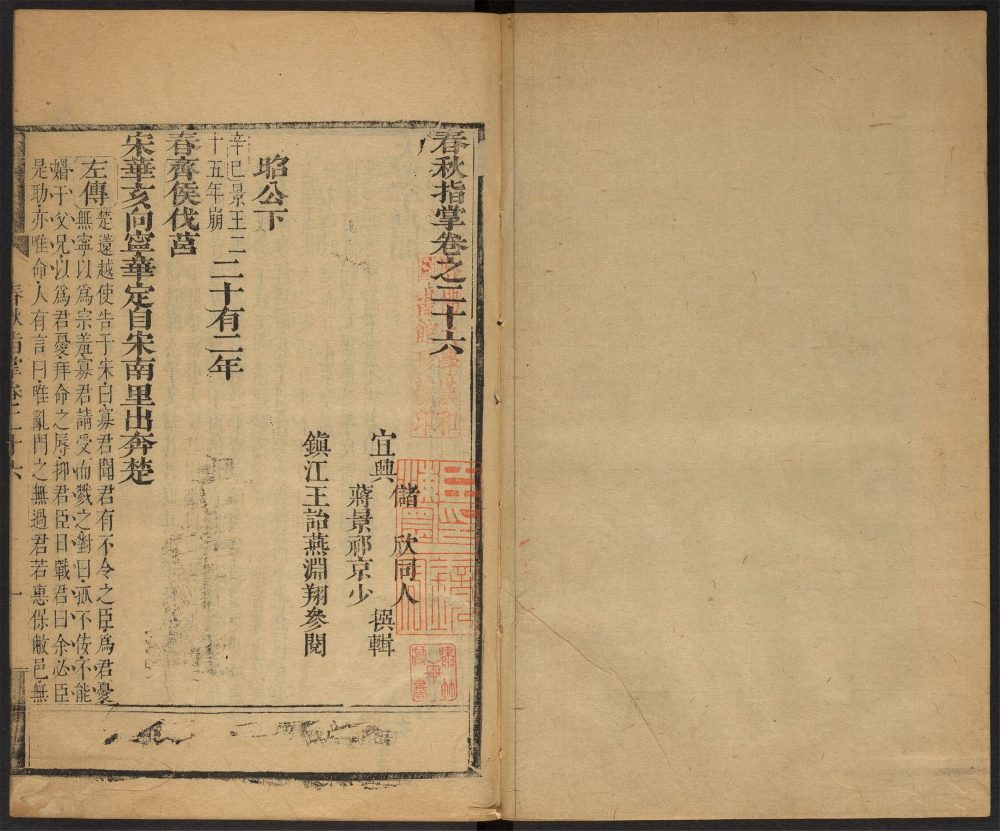 春秋指掌卷之二十六
宜興
儲欣同人
蔣景祁京少
撰輯
鎮江王詒燕淵翔參閱
昭公下
辛巳景王二
十五年崩
二十有二年
春齊侯伐莒
宋華亥向寧華定自宋南里出奔楚
左傳
楚薳越使告于宋曰寡君聞君有不令之臣爲君憂
無寧以爲宗羞寡君請受而戮之對曰孤不佞不能
媚于父兄以爲君憂拜命之辱抑君臣日戰君曰余必臣
是助亦唯命人有言曰唯亂門之無過君若惠保敝邑無
春秋指掌卷二十六
一